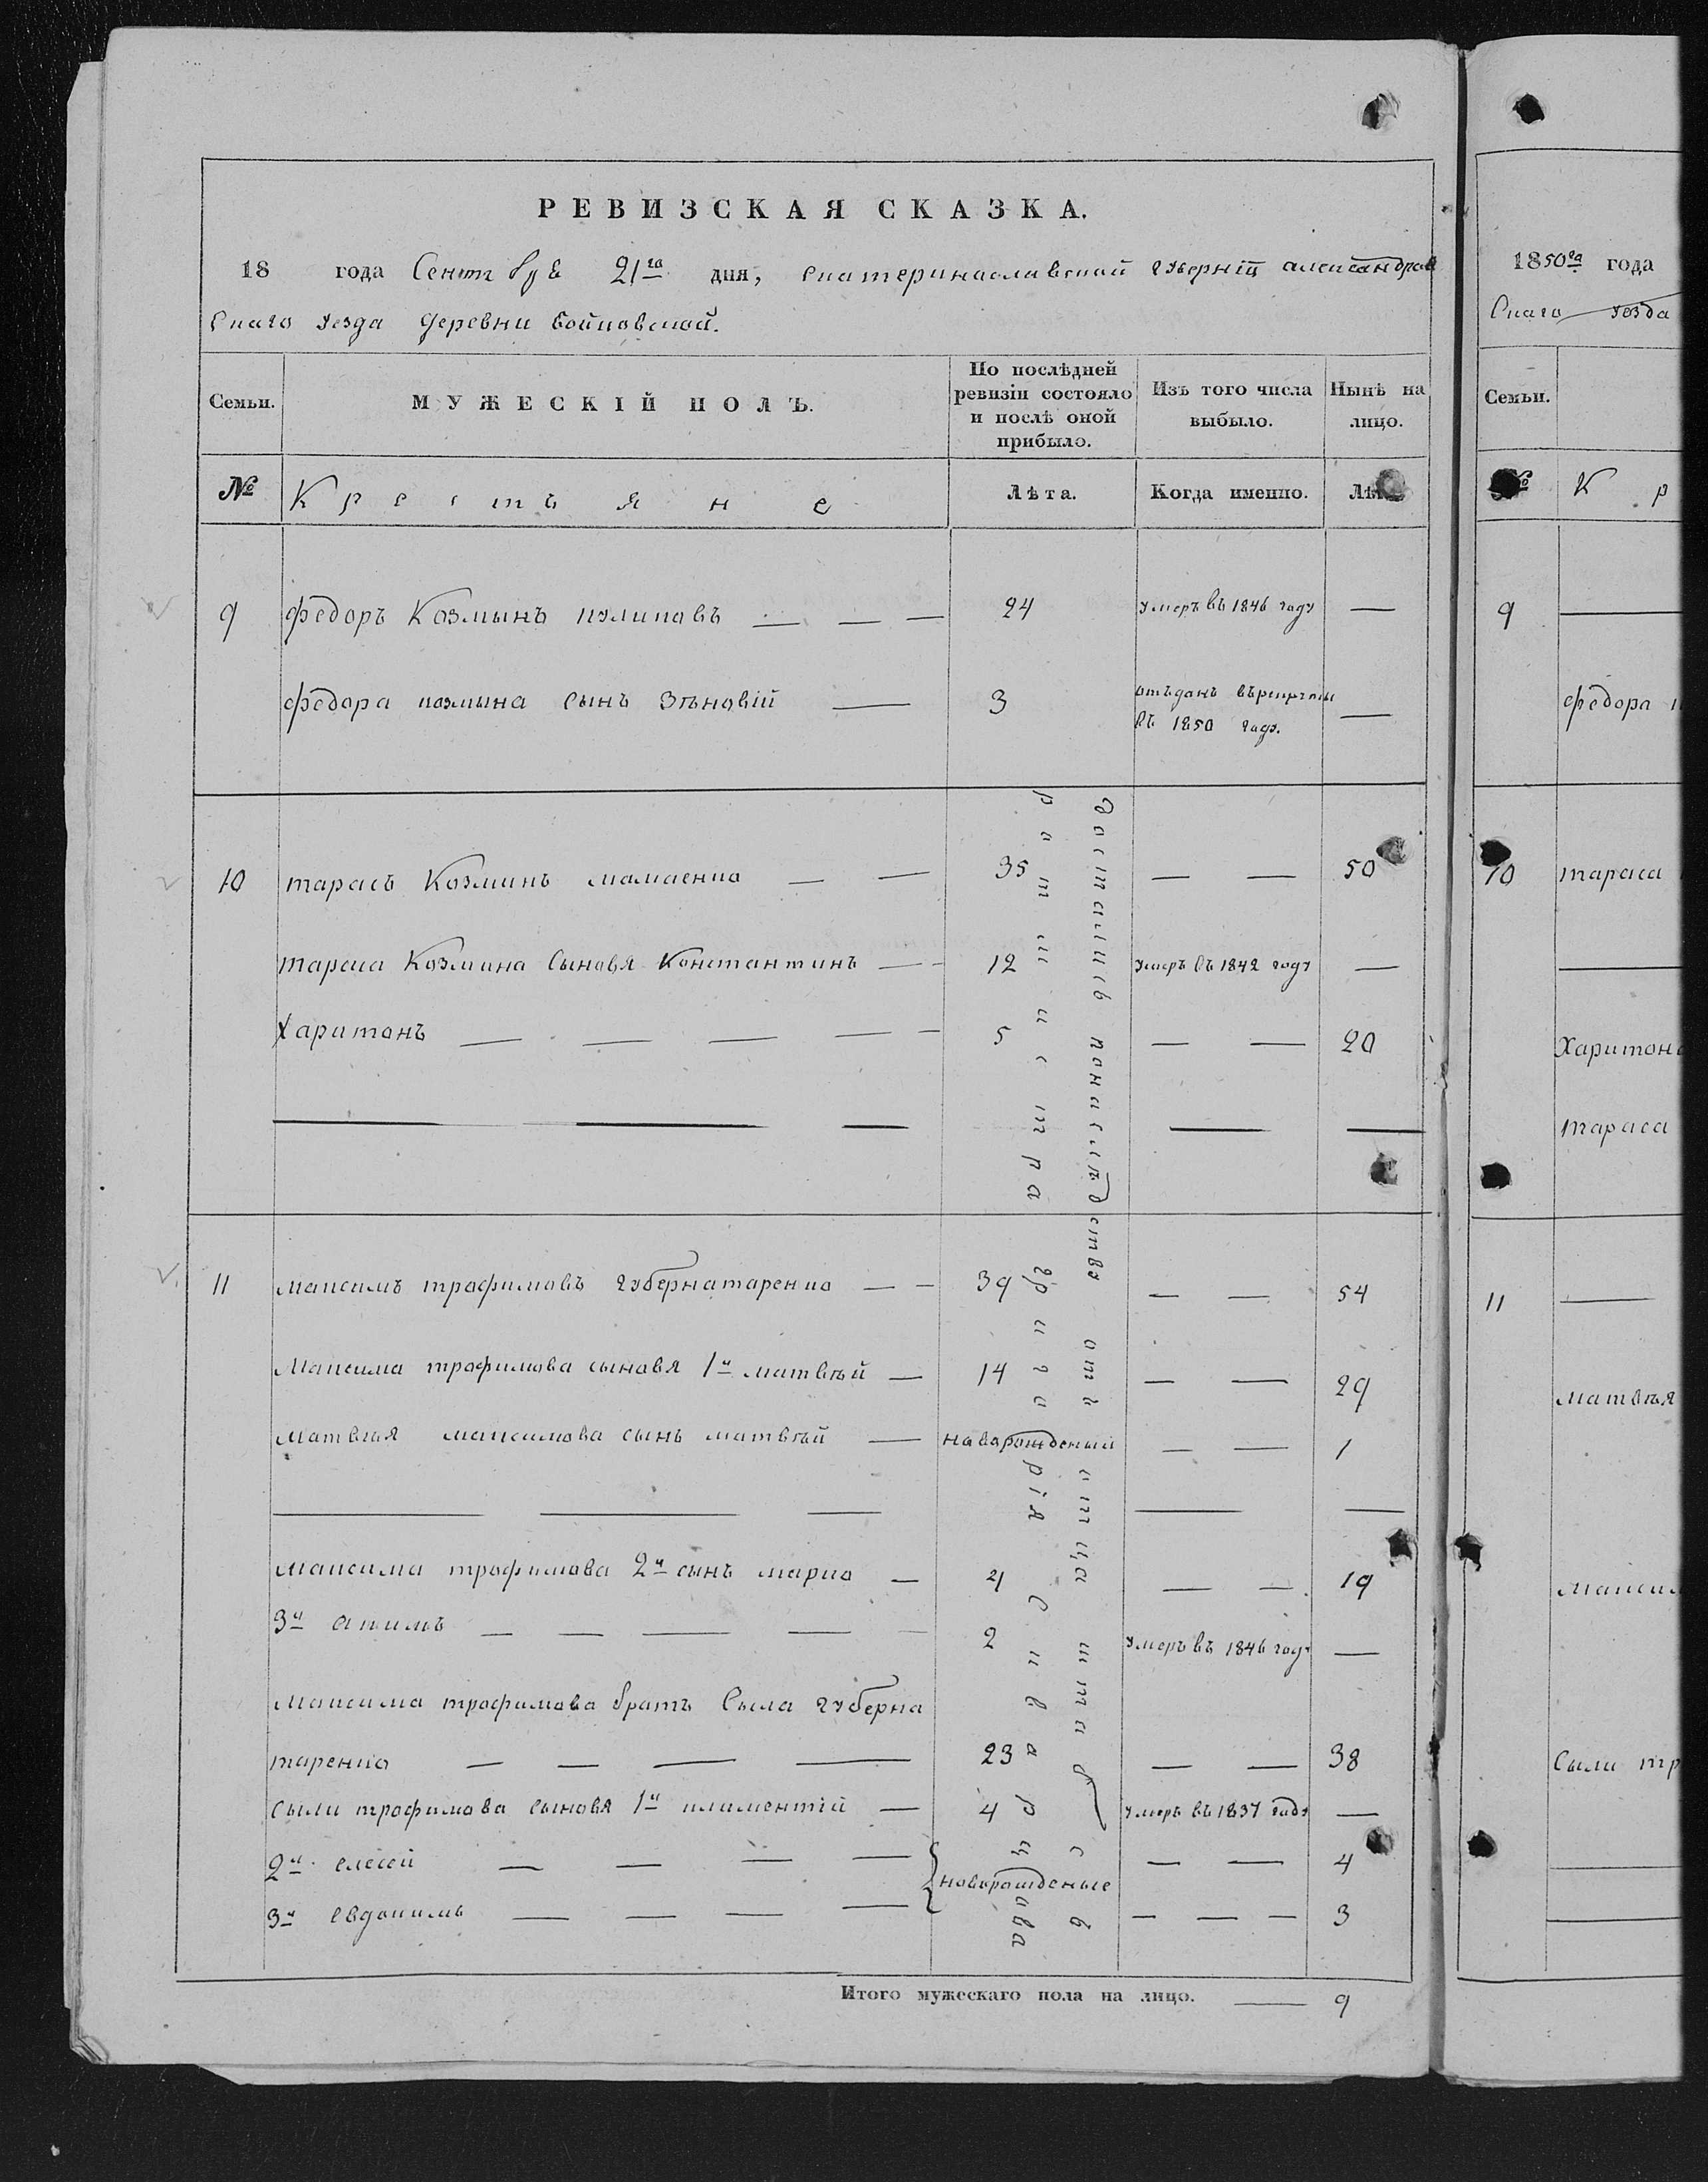 РЕВИЗСКАЯ СКАЗКА.
18 года Сентября 21го дня, Екатеринославской губерніи александров
скаго уезда деревни Войновской.
Семьи.
МУЖЕСКІЙ ПОЛЪ.
По послѣдней
ревизіи состояло
и послѣ оной
прибыло.
Изъ того числа
выбыло.
Нынѣ на
лицо.
№ Крестьяне Лѣта. Когда именно. Лѣта
9 федоръ Козмынъ куликовъ — — — 24 умеръ въ 1846 году —
федора козмына сынъ Зѣновій — 3 отъданъ въ рекруты —
въ 1850 году.
10 тарасъ Козминъ мамаенко — — 35 — — 50
тараса Козмина сыновя Константинъ — - 12 умеръ въ 1842 году —
Харитонъ — — — — - 5 — — 20
11 максимъ трофимовъ губернаторенко — — 39 — — 54
Максима трофимова сыновя 1й матвѣй — 14 — — 29
Матвѣя максимова сынъ матвѣй — новорожденый — — 1
максима трофимова 2й сынъ марко — 4 — — 19
3й акимъ — — — — — 2 умеръ въ 1846 году —
максима трофимова братъ Сыла губерна
таренко — — — — 23 — — 38
сыли трофимова сыновя 1й климентій — 4 умеръ въ 1837 году —
2й елесей — — — — — — 4
новорожденые
3й евдокимъ — — — — — — — 3
достались понаследству отъ отца штаб с в
ратмистра григорія Сиварцова
Итого мужескаго пола на лицо. — 9
1850го года
скаго уезда
Семьи.
№ К р
9
федора
10 тараса
Харитона
тараса
11
матвѣя
Сыли тр